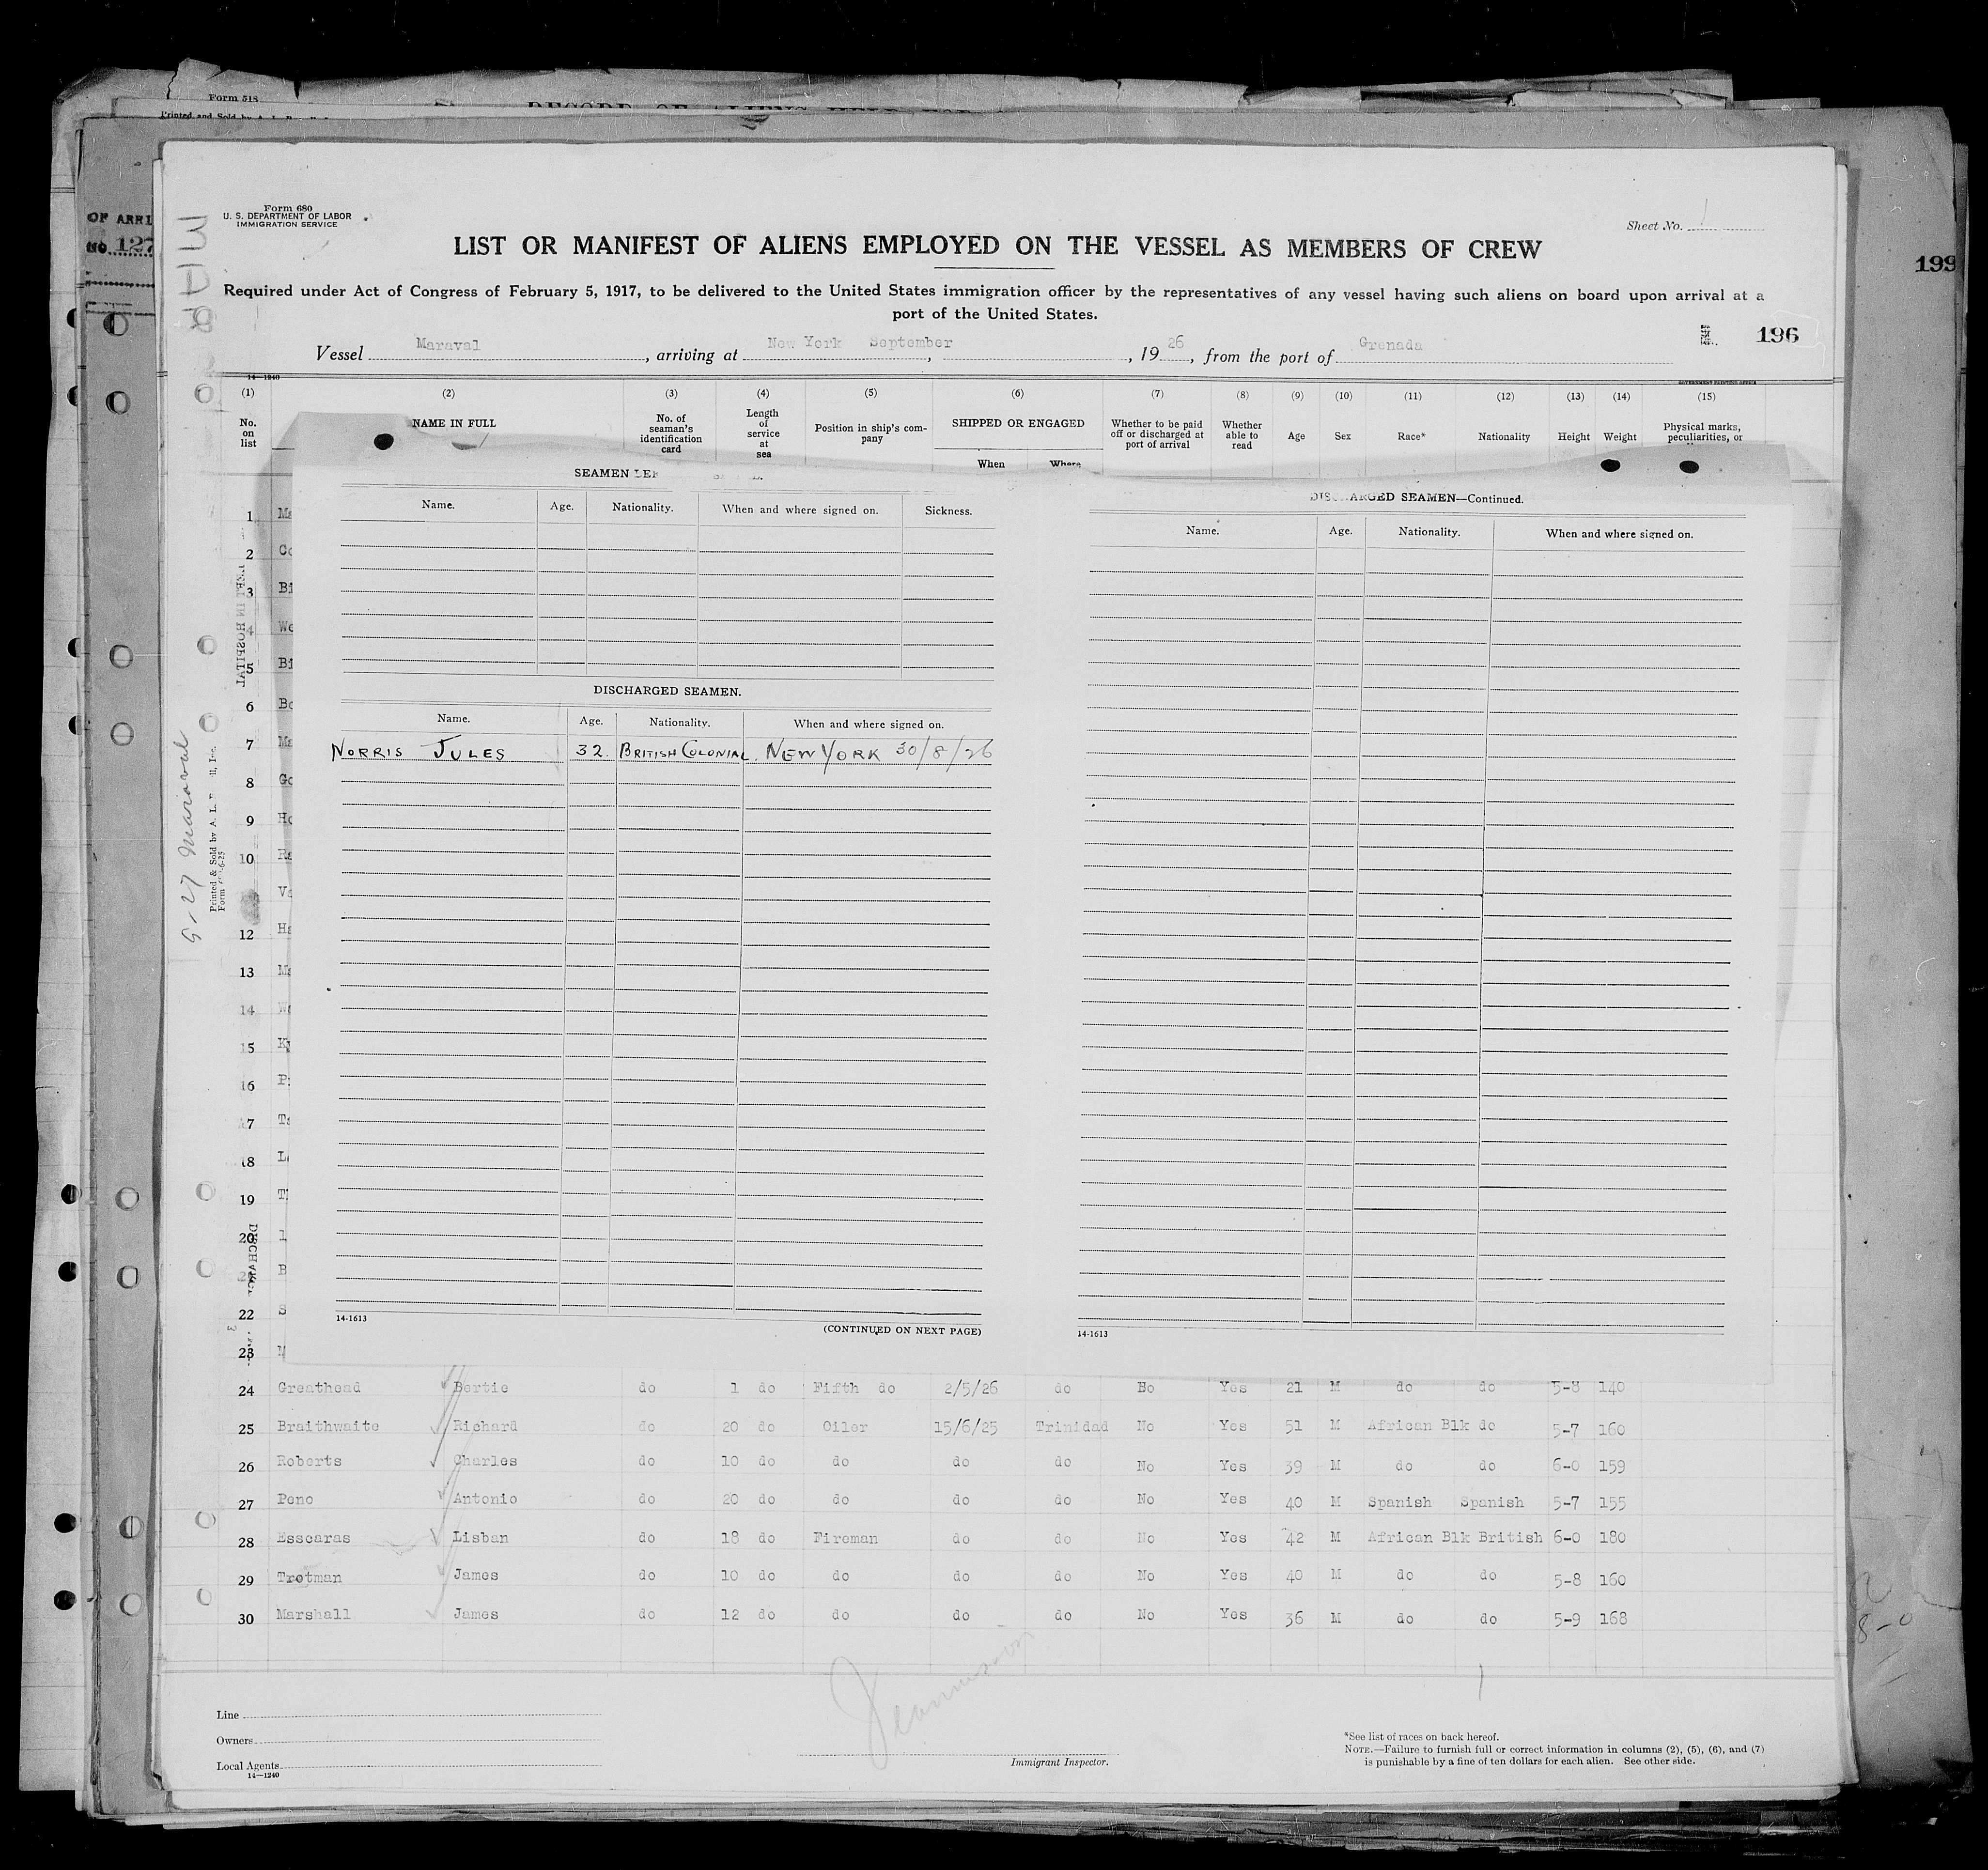 Form 518
OF ARRI
No. 127
199
Form 680
U. S. DEPARTMENT OF LABOR
IMMIGRATION SERVICE
Sheet No. 1
LIST OR MANIFEST OF ALIENS EMPLOYED ON THE VESSEL AS MEMBERS OF CREW
Required under Act of Congress of February 5, 1917, to be delivered to the United States immigration officer by the representatives of any vessel having such aliens on board upon arrival at a
port of the United States.
196
Vessel Maraval, arriving at New York September, 1926, from the port of Grenada
14-1240
(1) (2) (3) (4) (5) (6) (7) (8) (9) (10) (11) (12) (13) (14) (15)
No. on list NAME IN FULL No. of seaman's identification card Length of service at sea Position in ship's company SHIPPED OR ENGAGED Whether to be paid off or discharged at port of arrival Whether able to read Age Sex Race* Nationality Height Weight Physical marks, peculiarities, or
When Where
SEAMEN
Name. Age. Nationality. When and where signed on. Sickness.
DISCHARGED SEAMEN.
Name. Age. Nationality. When and where signed on.
NORRIS JULES 32. BRITISH COLONIAL. NEW YORK 30/8/26
14-1613
(CONTINUED ON NEXT PAGE)
DISCHARGED SEAMEN—Continued.
Name. Age. Nationality. When and where signed on.
14-1613
1 Ma
2 Co
3 Bi
4 Wo
5 Bi
6 Bo
7 Ma
8 Go
9 Ho
10
12 Ha
13
14
15
16
17
18
19
20
22
23
24 Greathead Bertie do 1 do Fifth do 2/5/26 do No Yes 21 M do do 5-8 140
25 Braithwaite Richard do 20 do Oiler 15/6/25 Trinidad No Yes 51 M African Blk do 5-7 160
26 Roberts Charles do 10 do do do do No Yes 39 M do do 6-0 159
27 Peno Antonio do 20 do do do do No Yes 40 M Spanish Spanish 5-7 155
28 Esscaras Lisban do 18 do Fireman do do No Yes 42 M African Blk British 6-0 180
29 Trotman James do 10 do do do do No Yes 40 M do do 5-8 160
30 Marshall James do 12 do do do do No Yes 36 M do do 5-9 168
Line
Owners
Local Agents
14—1240
Immigrant Inspector.
*See list of races on back hereof.
NOTE.—Failure to furnish full or correct information in columns (2), (5), (6), and (7)
is punishable by a fine of ten dollars for each alien. See other side.